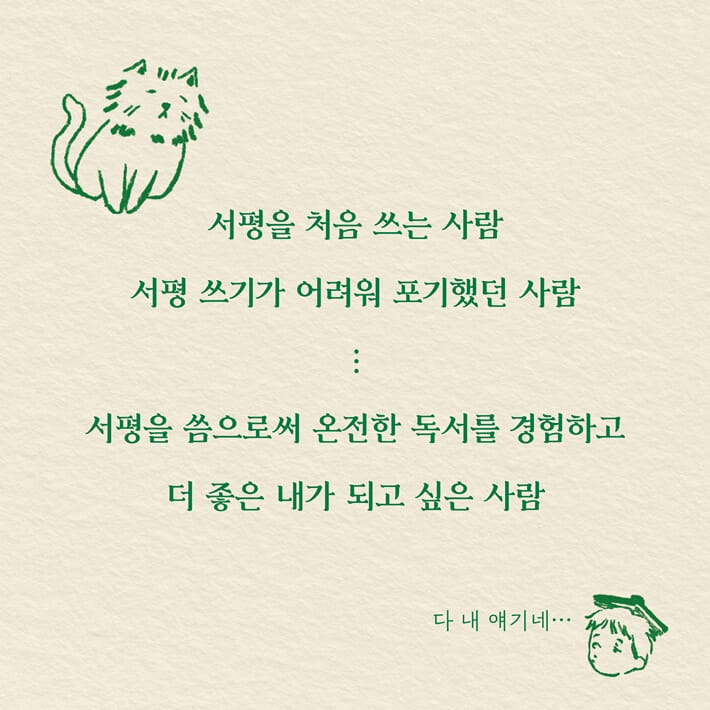 서평을 처음 쓰는 사람
서평 쓰기가 어려워 포기했던 사람
⋮
서평을 씀으로써 온전한 독서를 경험하고
더 좋은 내가 되고 싶은 사람
다 내 얘기네…